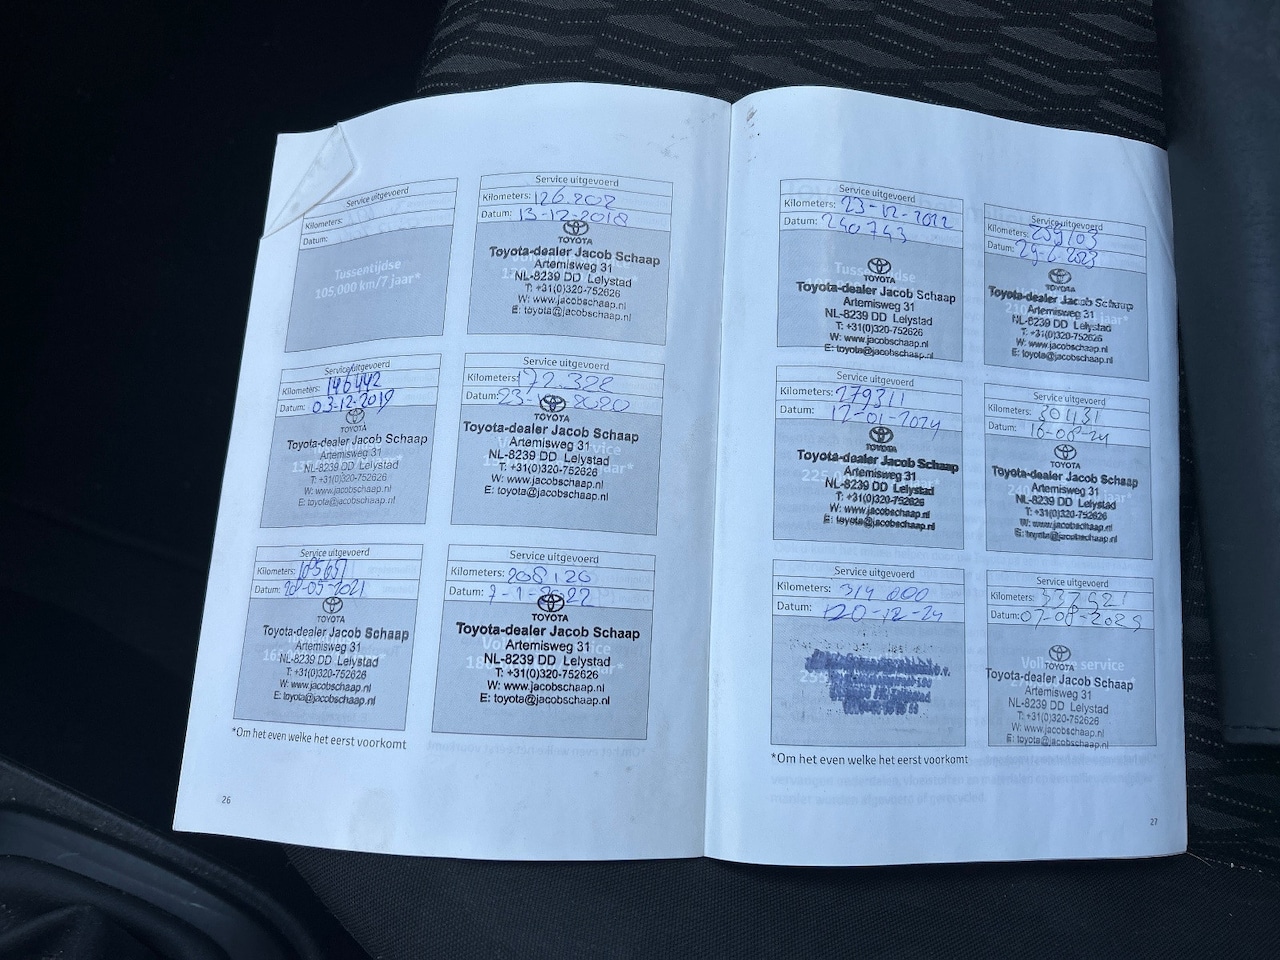 Service uitgevoerd
Kilometers:
Datum:
Tussentijdse
105,000 km/7 jaar*
Service uitgevoerd
Kilometers: 126.202
Datum: 13-12-2018
TOYOTA
Toyota-dealer Jacob Schaap
Artemisweg 31
NL-8239 DD Lelystad
T: +31(0)320-752626
W: www.jacobschaap.nl
E: toyota@jacobschaap.nl
Service uitgevoerd
Kilometers: 146442
Datum: 03-12-2019
TOYOTA
Toyota-dealer Jacob Schaap
Artemisweg 31
NL-8239 DD Lelystad
T: +31(0)320-752626
W: www.jacobschaap.nl
E: toyota@jacobschaap.nl
Service uitgevoerd
Kilometers: 172.328
Datum: 23- 2020
TOYOTA
Toyota-dealer Jacob Schaap
Artemisweg 31
NL-8239 DD Lelystad
T: +31(0)320-752626
W: www.jacobschaap.nl
E: toyota@jacobschaap.nl
Service uitgevoerd
Kilometers:
Datum: 20-05-2021
TOYOTA
Toyota-dealer Jacob Schaap
Artemisweg 31
NL-8239 DD Lelystad
T: +31(0)320-752626
W: www.jacobschaap.nl
E: toyota@jacobschaap.nl
Service uitgevoerd
Kilometers: 208.126
Datum: 7-1-2022
TOYOTA
Toyota-dealer Jacob Schaap
Artemisweg 31
NL-8239 DD Lelystad
T: +31(0)320-752626
W: www.jacobschaap.nl
E: toyota@jacobschaap.nl
*Om het even welke het eerst voorkomt
26
Service uitgevoerd
Kilometers: 23-12-2022
Datum: 240743
TOYOTA
Toyota-dealer Jacob Schaap
Artemisweg 31
NL-8239 DD Lelystad
T: +31(0)320-752626
W: www.jacobschaap.nl
E: toyota@jacobschaap.nl
Service uitgevoerd
Kilometers: 259103
Datum: 29-6-2023
TOYOTA
Toyota-dealer Jacob Schaap
Artemisweg 31
NL-8239 DD Lelystad
T: +31(0)320-752626
W: www.jacobschaap.nl
E: toyota@jacobschaap.nl
Service uitgevoerd
Kilometers: 279311
Datum: 12-01-2024
TOYOTA
Toyota-dealer Jacob Schaap
Artemisweg 31
NL-8239 DD Lelystad
T: +31(0)320-752626
W: www.jacobschaap.nl
E: toyota@jacobschaap.nl
Service uitgevoerd
Kilometers: 301131
Datum: 16-08-24
TOYOTA
Toyota-dealer Jacob Schaap
Artemisweg 31
NL-8239 DD Lelystad
T: +31(0)320-752626
W: www.jacobschaap.nl
E: toyota@jacobschaap.nl
Service uitgevoerd
Kilometers: 314 000
Datum: 20-12-24
Service uitgevoerd
Kilometers: 337921
Datum: 07-08-2025
TOYOTA
Toyota-dealer Jacob Schaap
Artemisweg 31
NL-8239 DD Lelystad
T: +31(0)320-752626
W: www.jacobschaap.nl
E: toyota@jacobschaap.nl
*Om het even welke het eerst voorkomt
27